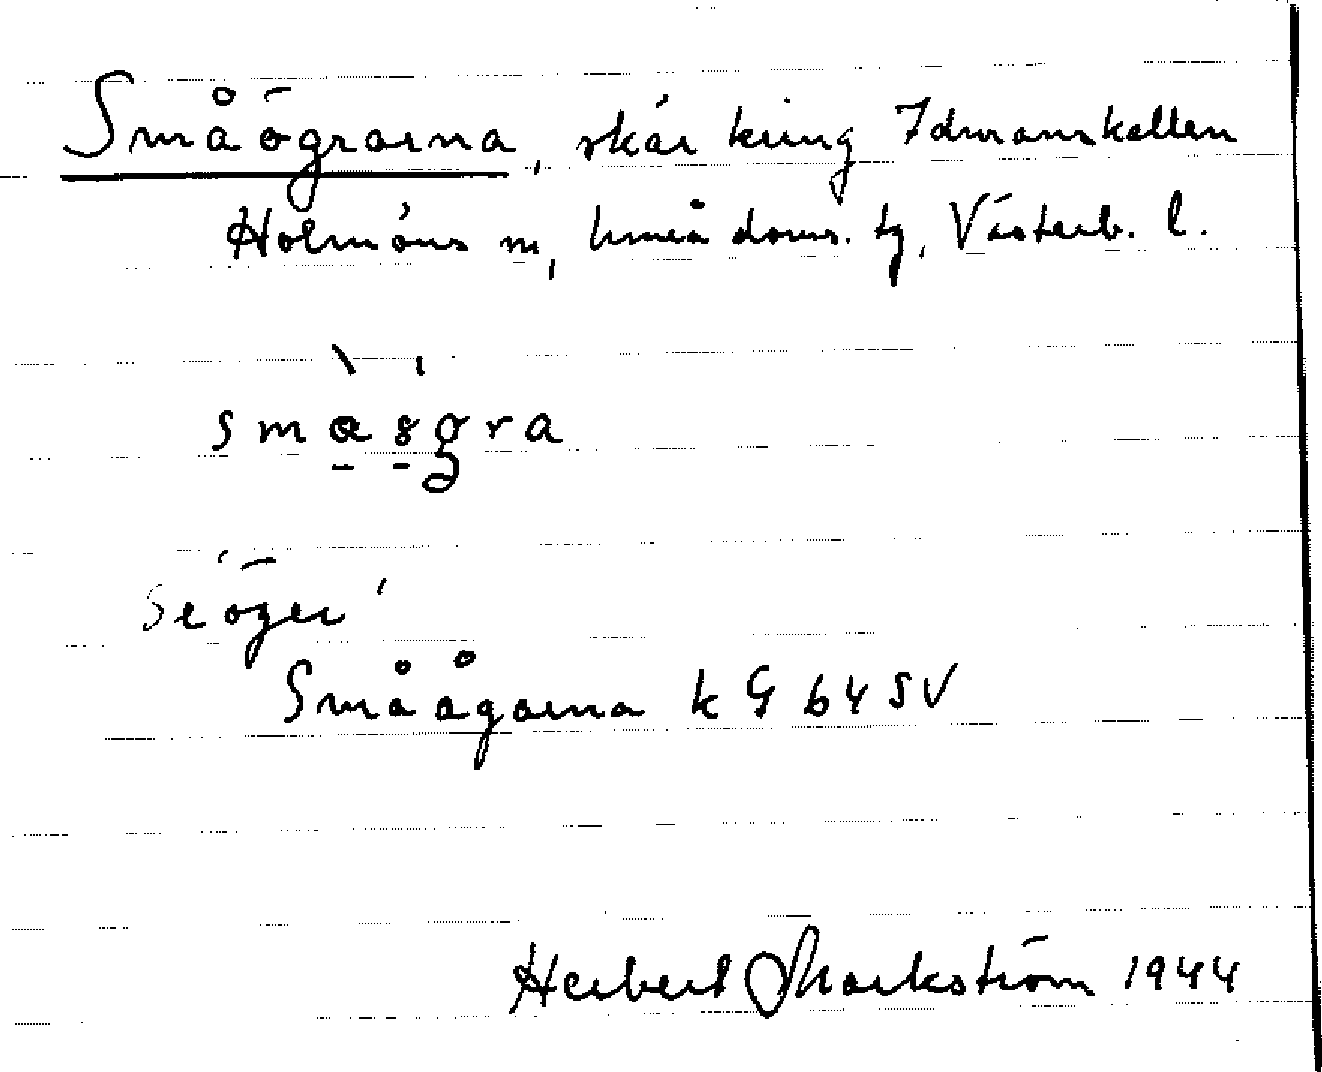 Småögrarna, skär kring Idmanskallen
Holmöns sn, Umeå doms. tg, Västerb. l.
Se öger!
Småågarna k G 64 SV
Herbert Markström 1944